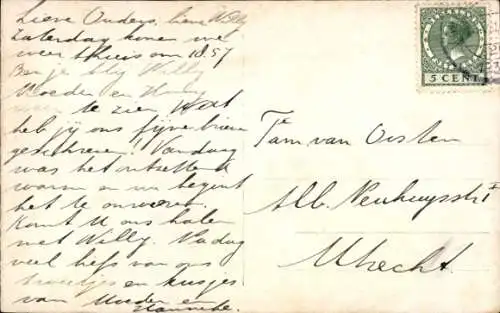 Lieve Ouders, lieve Willy
Zaterdag komen we
weer thuis om 18.57
Ben je bly Willy
Moeder en
te zien Wat
heb jij ons fijne brieven
geschreven! Vandaag
was het ontzettend
warm en nu begint
het te onweren.
Komt U ons halen
met Willy. Vandaag
veel liefs van ons
en kusjes
van Moeder en
Hanneke.
NEDERLAND
5 CENT
Fam van Oosten
Alb. Neuhuysstr
Utrecht